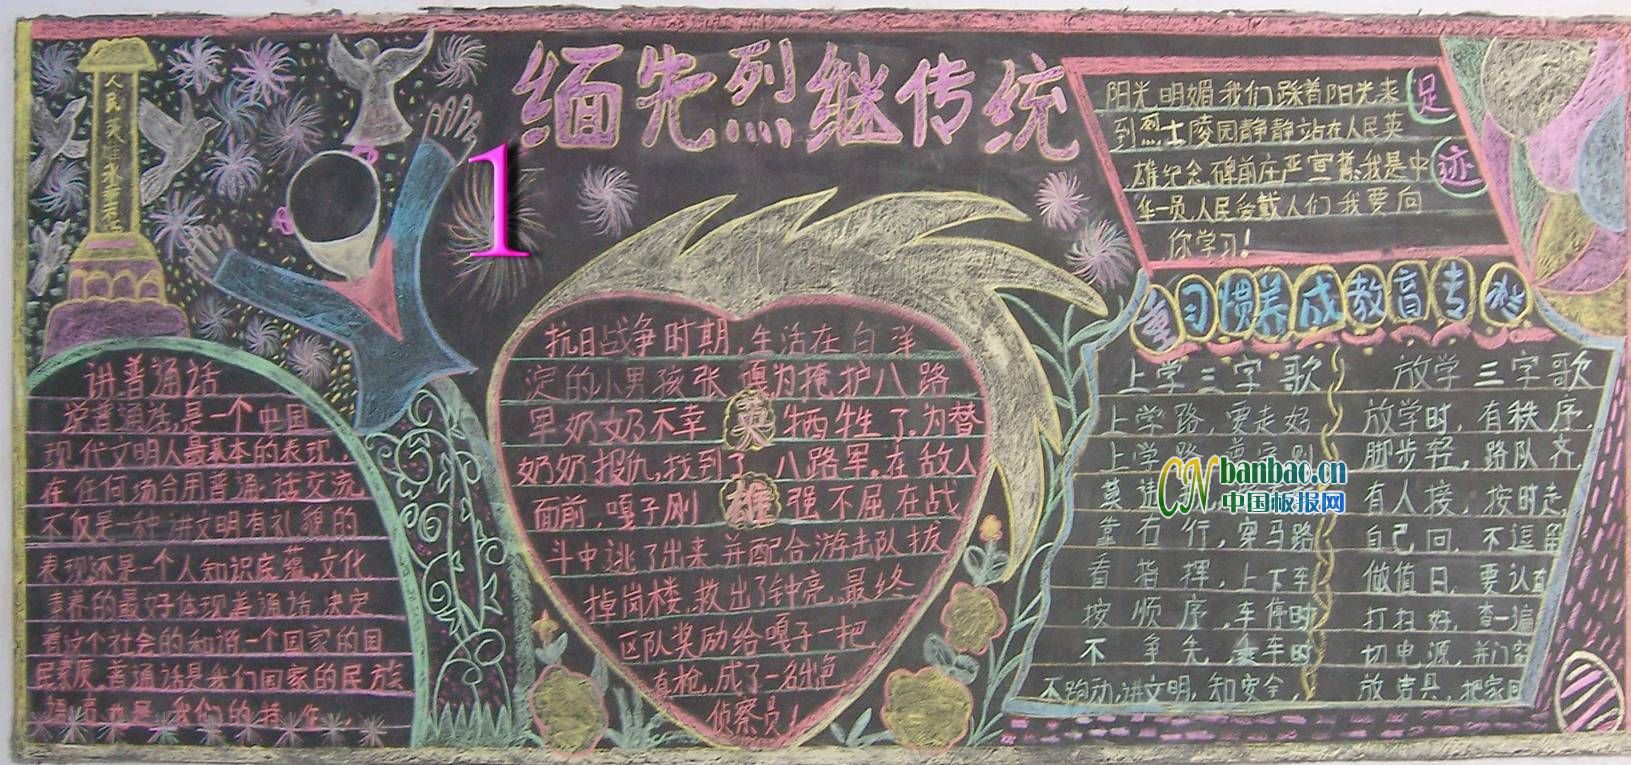 缅先烈继传统
1
人民英雄永垂
足迹
阳光明媚我们踩着阳光来
到烈士陵园静静站在人民英
雄纪念碑前庄严宣誓:我是中
华一员,人民爱戴人们我要向
你学习!
讲普通话
说普通话,是一个中国
现代文明人最基本的表现,
在任何场合用普通话交流
不仅是一种讲文明有礼貌的
表现还是一个人知识底蕴,文化
素养的最好体现普通话,决定
着这个社会的和谐一个国家的国
民素质,普通话是我们国家的民族
语言也是我们的
英雄
抗日战争时期,生活在白洋
淀的小男孩张嘎为掩护八路
军奶奶不幸牺牲了,为替
奶奶报仇,找到了八路军。在敌人
面前,嘎子刚强不屈在战
斗中逃了出来并配合游击队拔
掉岗楼,救出了钟亮,最终
区队奖励给嘎子一把,
真枪,成了一名出色
侦察员!
习惯养成教育专栏
上学三字歌
上学路,要走好
上学路
莫
靠右行,穿马路
看指挥,上下车
按顺序,车停时
不争先,乘车时
不跑动,讲文明,知安全,
放学三字歌
放学时,有秩序,
脚步轻,路队齐,
有人接,按时走,
自己回,不逗留
做值日,要认真
打扫好,查一遍
切电源,并门窗
放洁具,把家回
CN banbao.cn
中国板报网